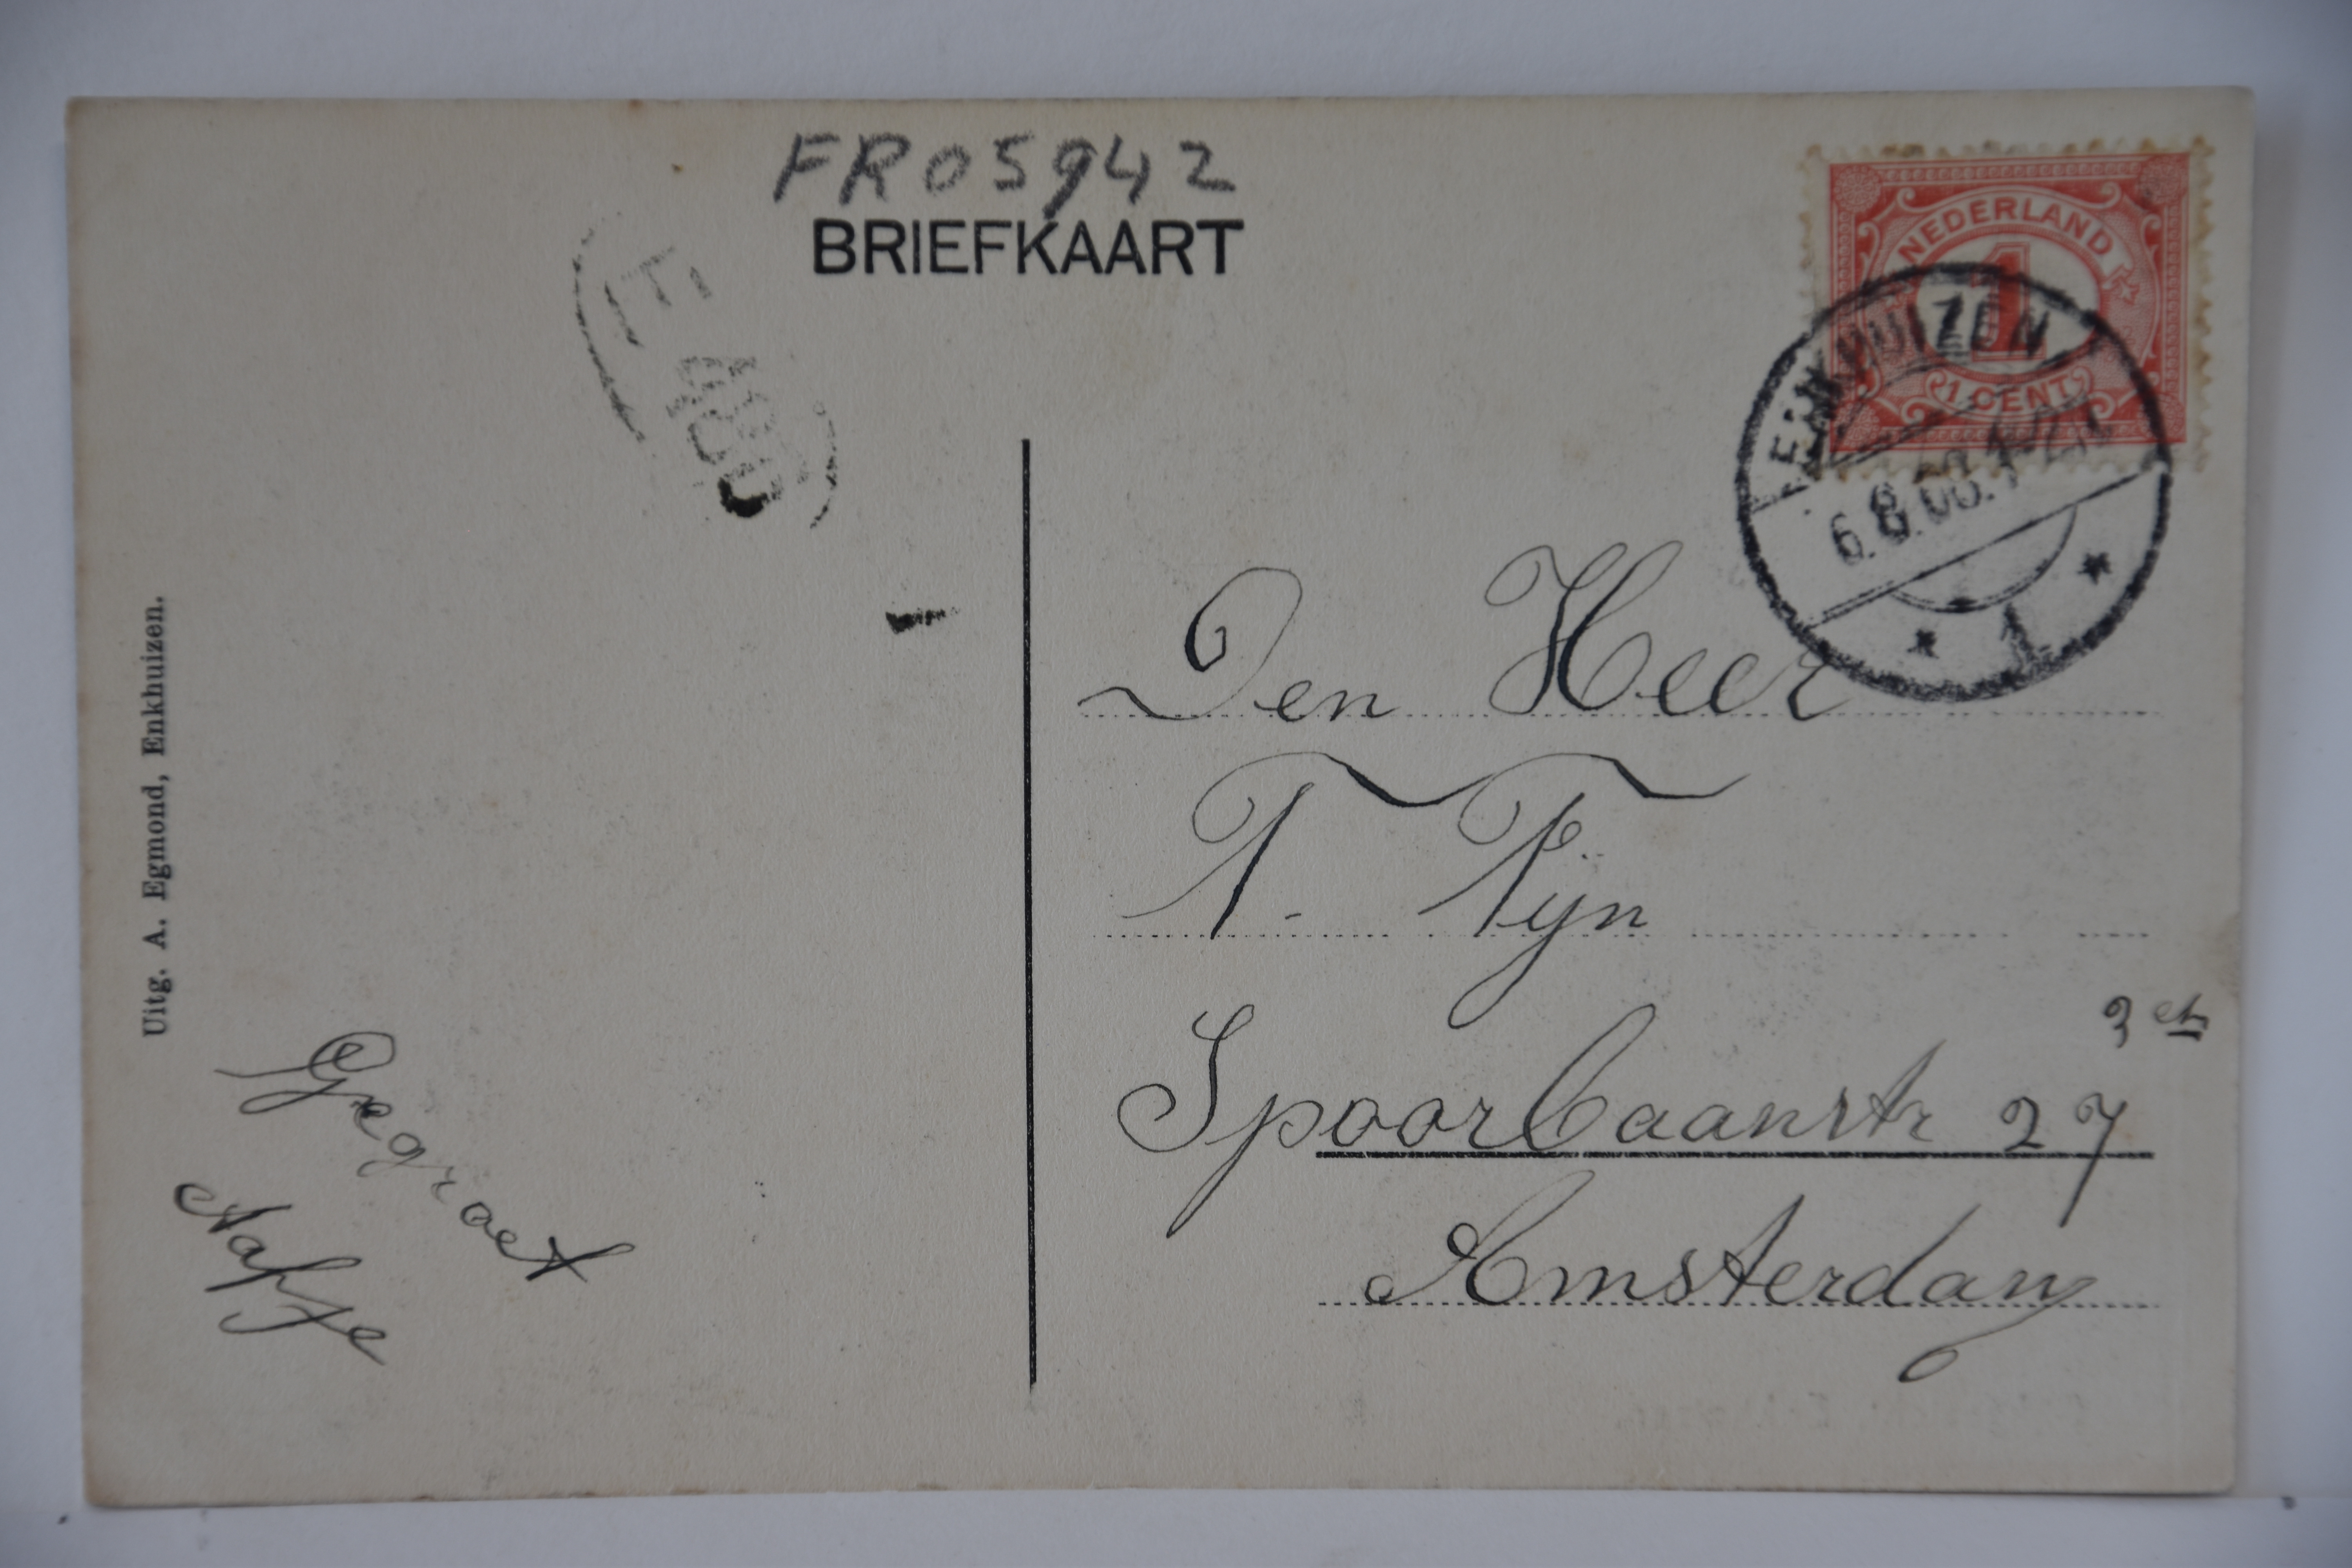 FR05942
BRIEFKAART
NEDERLAND
1
1 CENT
ENKHUIZEN
6.8.08.
1
E 400
Den Heer
T. Tyn
Spoorbaanstr 27
Amsterdam
Uitg. A. Egmond, Enkhuizen.
Gegroet